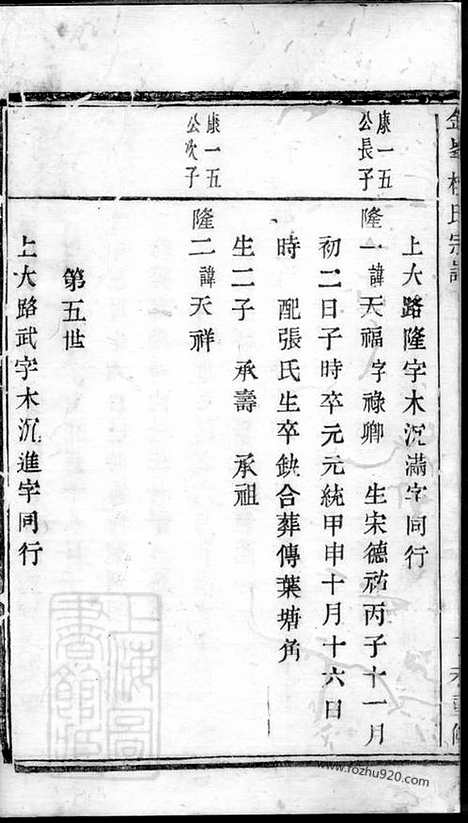 上大路隆字木沉滿字同行
康一五
公長子
隆一諱天福字祿卿　生宋德祐丙子十一月
初二日子時卒元元統甲申十月十六日
時　配張氏生卒缺合葬傳葉塘角
生二子　承壽　承祖
康一五
公次子
隆二諱天祥
第五世
上大路武字木沉進字同行
上海圖書館藏
www.fozhu920.com